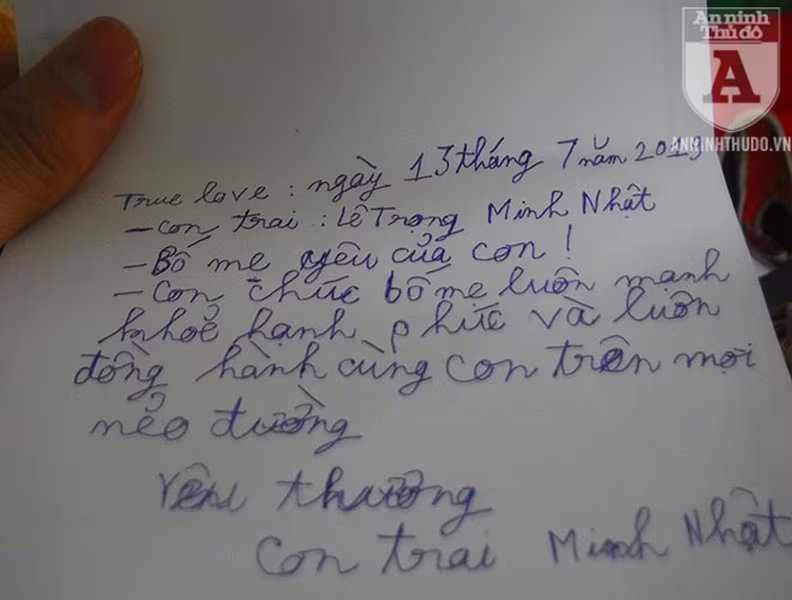 An ninh
Thủ đô
A
ANNINHTHUDO.VN
True love : ngày 13 tháng 7 năm 2013
- con trai : Lê Trọng Minh Nhật
- Bố mẹ yêu của con !
- Con chúc bố mẹ luôn mạnh
khoẻ hạnh phúc và luôn
đồng hành cùng con trên mọi
nẻo đường
Yêu thương
con trai Minh Nhật